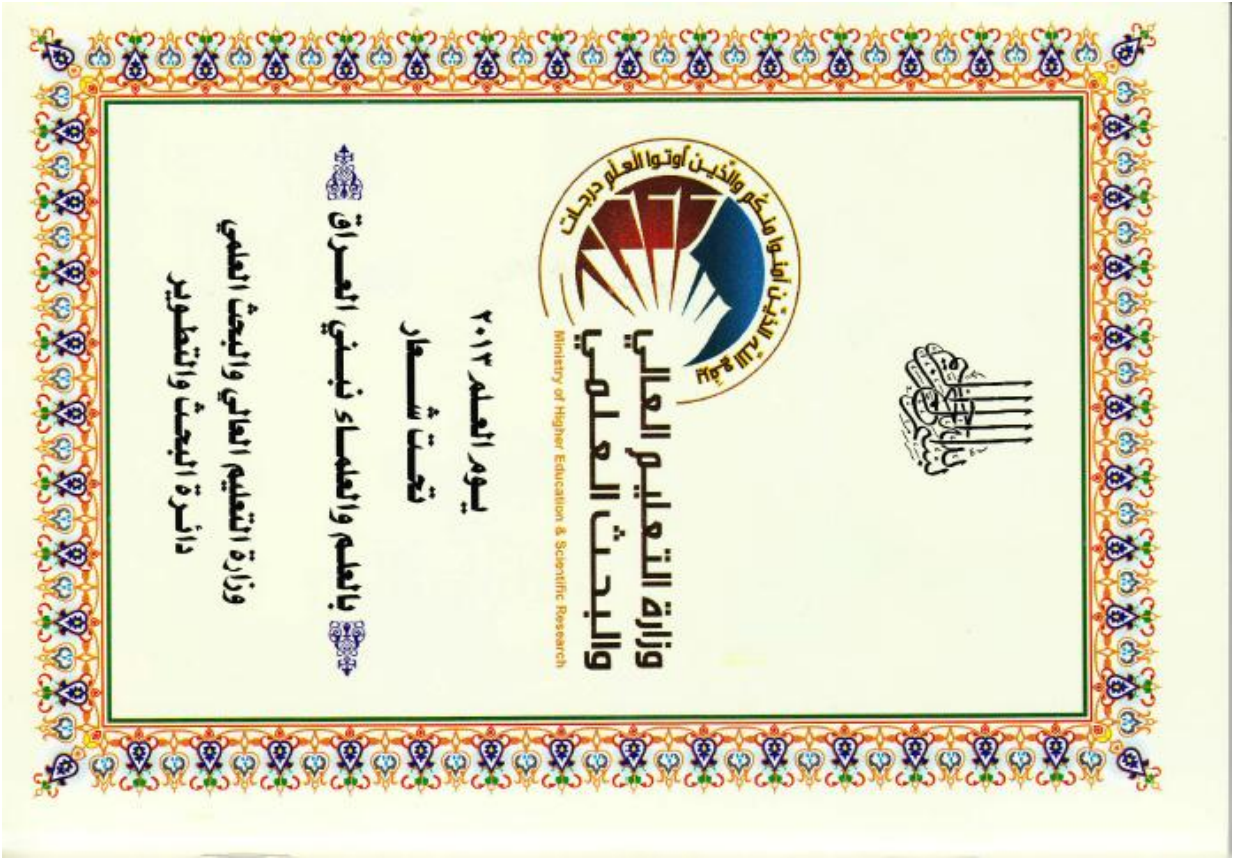 بسم الله الرحمن الرحيم
يرفع الله الذين آمنوا منكم والذين أوتوا العلم درجات
وزارة التعليم العالي
والبحث العلمي
Ministry of Higher Education & Scientific Research
يوم العلم ٢٠١٣
تحت شعار
بالعلم والعلماء نبني العراق
وزارة التعليم العالي والبحث العلمي
دائرة البحث والتطوير